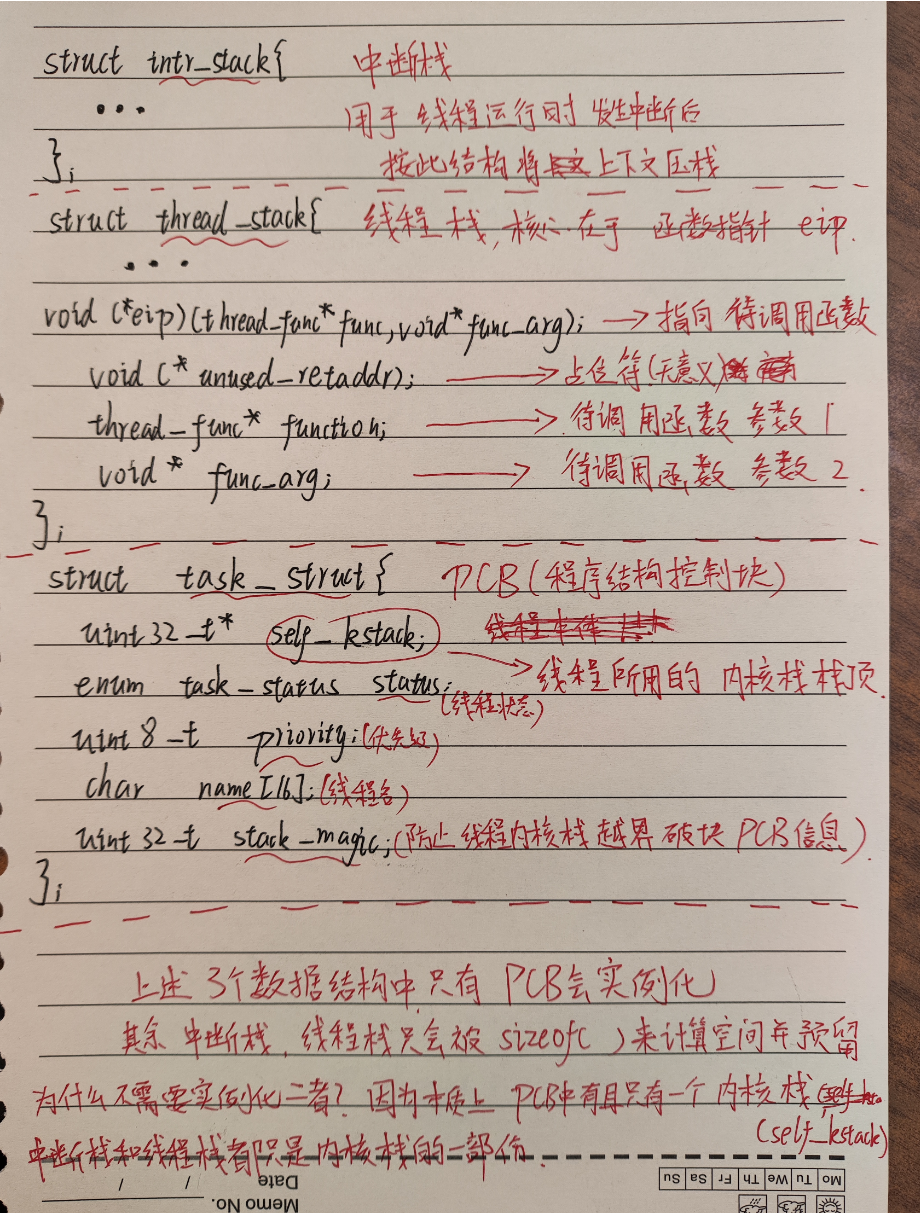 struct intr_stack{ 中断栈
... 用于线程运行时发生中断后
}; 按此结构将上下文压栈
struct thread_stack{ 线程栈,核心在于函数指针 eip.
...
void (*eip)(thread_func* func,void* func_arg); → 指向待调用函数
void (* unused_retaddr); → 占位符(无意义)
thread_func* function; → 待调用函数 参数1
void* func_arg; → 待调用函数 参数2.
};
struct task_struct{ PCB(程序结构控制块)
uint32_t* self_kstack;
→ 线程所用的内核栈栈顶.
enum task_status status; (线程状态)
uint8_t priority; (优先级)
char name[16]; (线程名)
uint32_t stack_magic; (防止线程内核栈越界破块PCB信息).
};
上述3个数据结构中只有PCB会实例化
其余中断栈,线程栈只会被sizeof( )来计算空间并预留
为什么不需要实例化二者? 因为本质上PCB中有且只有一个内核栈
(self_kstack)
中断栈和线程栈都只是内核栈的一部份.
Memo No.
Date / /
Mo Tu We Th Fr Sa Su